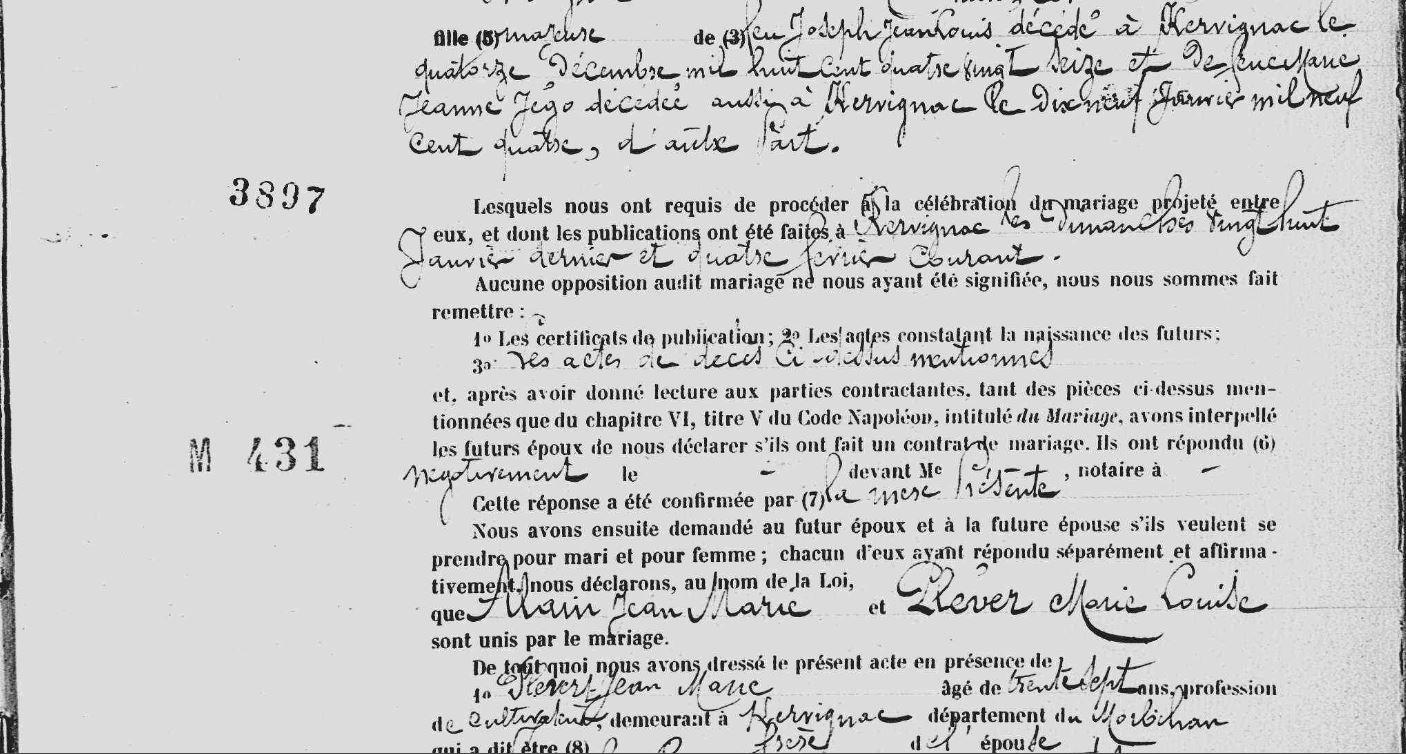 fille (5) majeure de (3) feu Joseph Jean Louis décédé à Kervignac le
quatorze Décembre mil huit cent quatre vingt seize et de feue Marie
Jeanne Jégo décédée aussi à Kervignac le Dix neuf Janvier mil neuf
cent quatre, d'autre part.
3897
Lesquels nous ont requis de procéder à la célébration du mariage projeté entre
eux, et dont les publications ont été faites à Kervignac les Dimanches vingt huit
Janvier dernier et quatre février courant.
Aucune opposition audit mariage ne nous ayant été signifiée, nous nous sommes fait
remettre :
1o Les certificats de publication; 2o Les actes constatant la naissance des futurs;
3o Les actes de décès ci-dessus mentionnés
et, après avoir donné lecture aux parties contractantes, tant des pièces ci-dessus men-
tionnées que du chapitre VI, titre V du Code Napoléon, intitulé du Mariage, avons interpellé
les futurs époux de nous déclarer s'ils ont fait un contrat de mariage. Ils ont répondu (6)
M 431
négativement le - devant Me , notaire à -
Cette réponse a été confirmée par (7) la mère présente
Nous avons ensuite demandé au futur époux et à la future épouse s'ils veulent se
prendre pour mari et pour femme; chacun d'eux ayant répondu séparément et affirma-
tivement, nous déclarons, au nom de la Loi,
que Alain Jean Marie et Pléver Marie Louise
sont unis par le mariage.
De tout quoi nous avons dressé le présent acte en présence de
1o Pléver Jean Marie âgé de trente sept ans, profession
de cultivateur, demeurant à Kervignac département du Morbihan
qui a dit être (8) frère de l'épouse